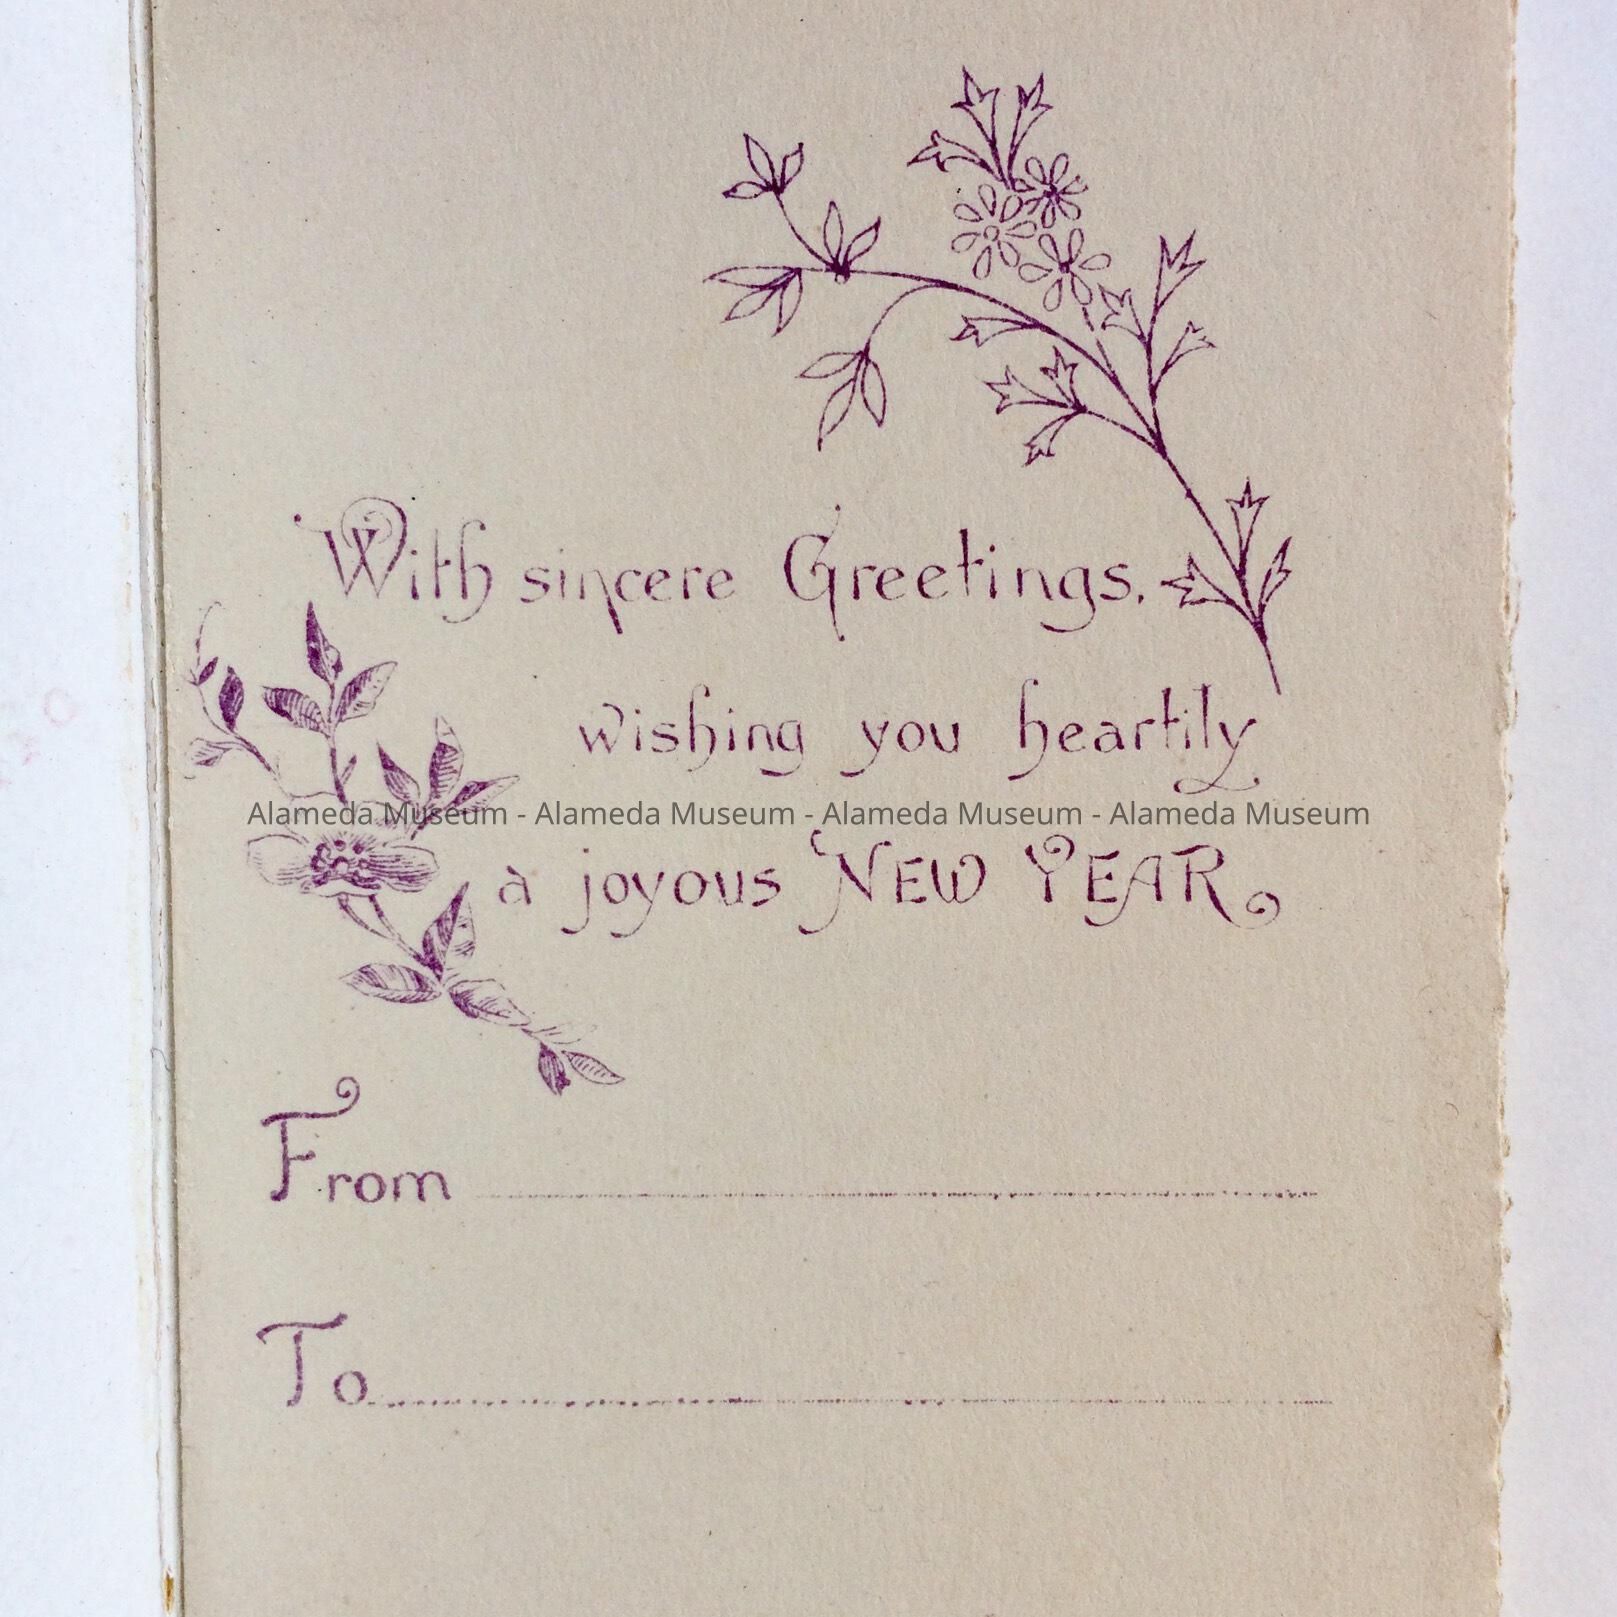 With sincere Greetings,
wishing you heartily
Alameda Museum - Alameda Museum - Alameda Museum - Alameda Museum
a joyous NEW YEAR
From
To